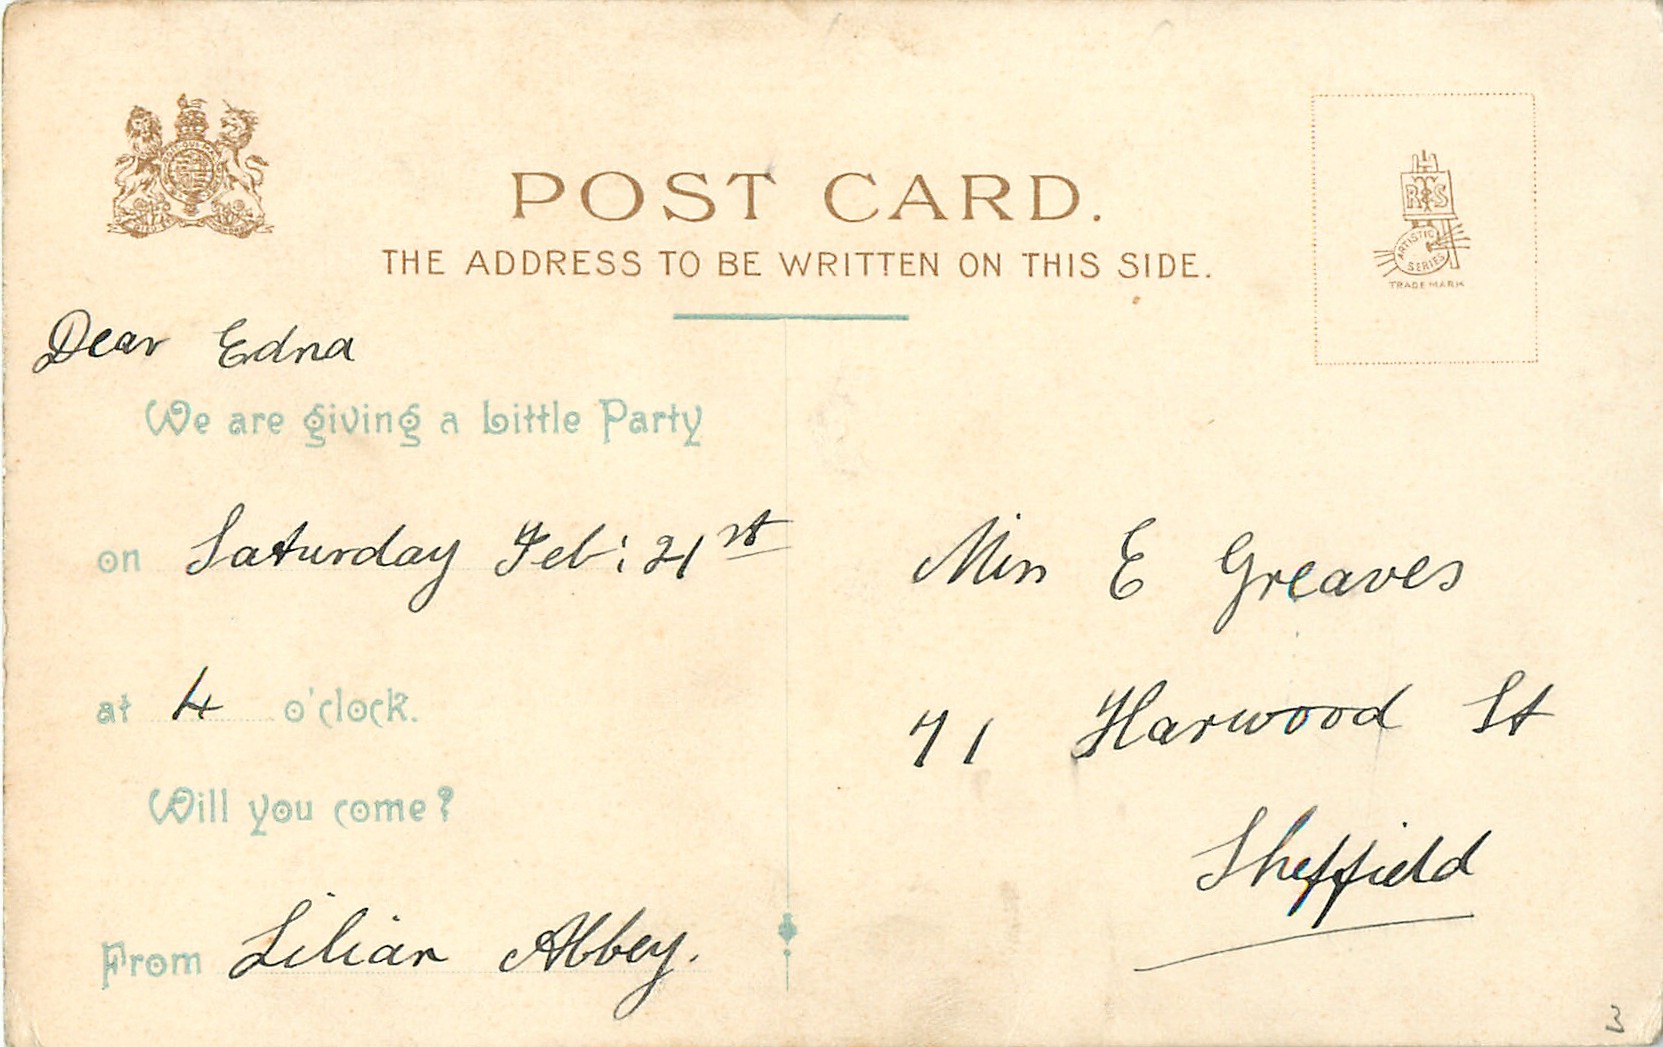 POST CARD.
THE ADDRESS TO BE WRITTEN ON THIS SIDE.
RTS
ARTISTIC SERIES
TRADE MARK
Dear Edna
We are giving a Little Party
on Saturday Feb: 21st
at 4 o'clock.
Will you come?
From Lilian Abbey.
Miss E Greaves
71 Harwood St
Sheffield
3